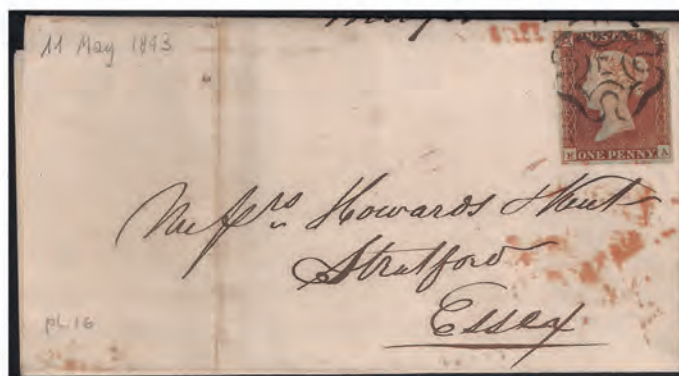 11 May 1843
POSTAGE
K A
ONE PENNY
Messrs Howards & Kent
Stratford
Essex
pl. 16